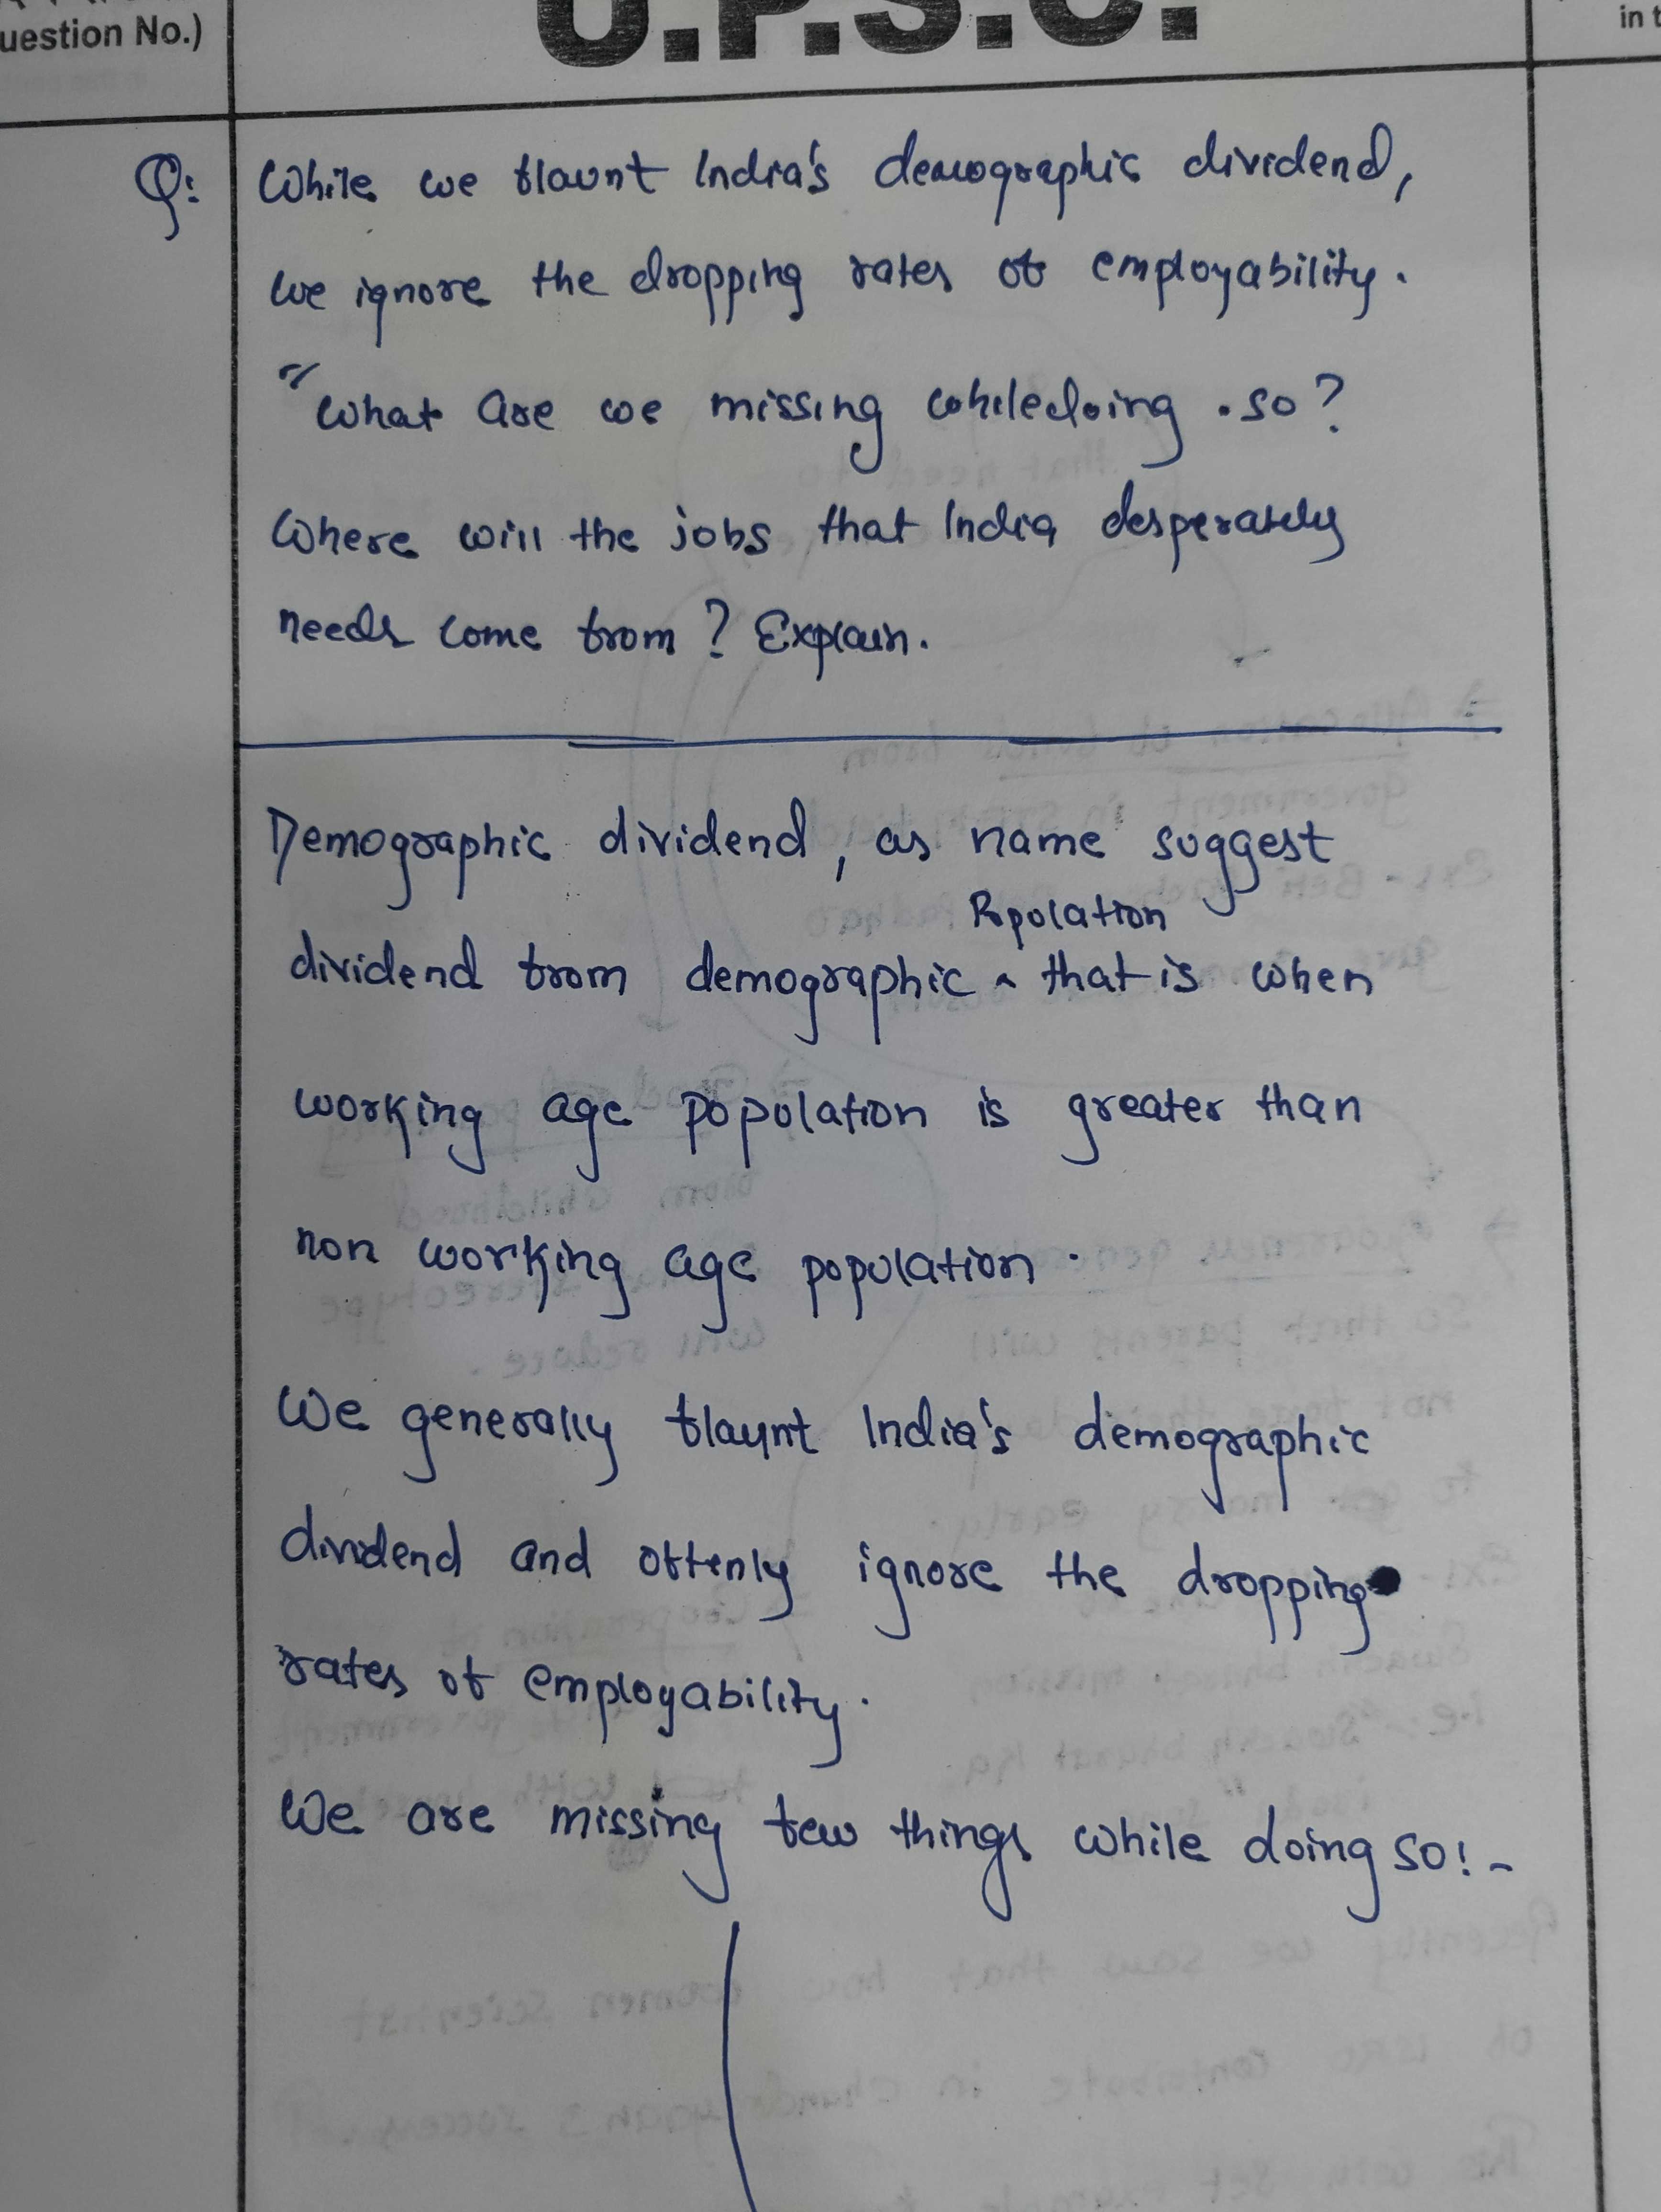 uestion No.)
U.P.S.C.
in t
Q: While we flaunt India's demographic dividend,
we ignore the dropping rates of employability.
"What are we missing while doing so?
Where will the jobs that India desperately
needs come from? Explain.
Demographic dividend, as name suggest
Population
dividend from demographic ^ that is when
working age population is greater than
non working age population.
We generally flaunt India's demographic
dividend and oftenly ignore the dropping
rates of employability.
We are missing few things while doing so:-